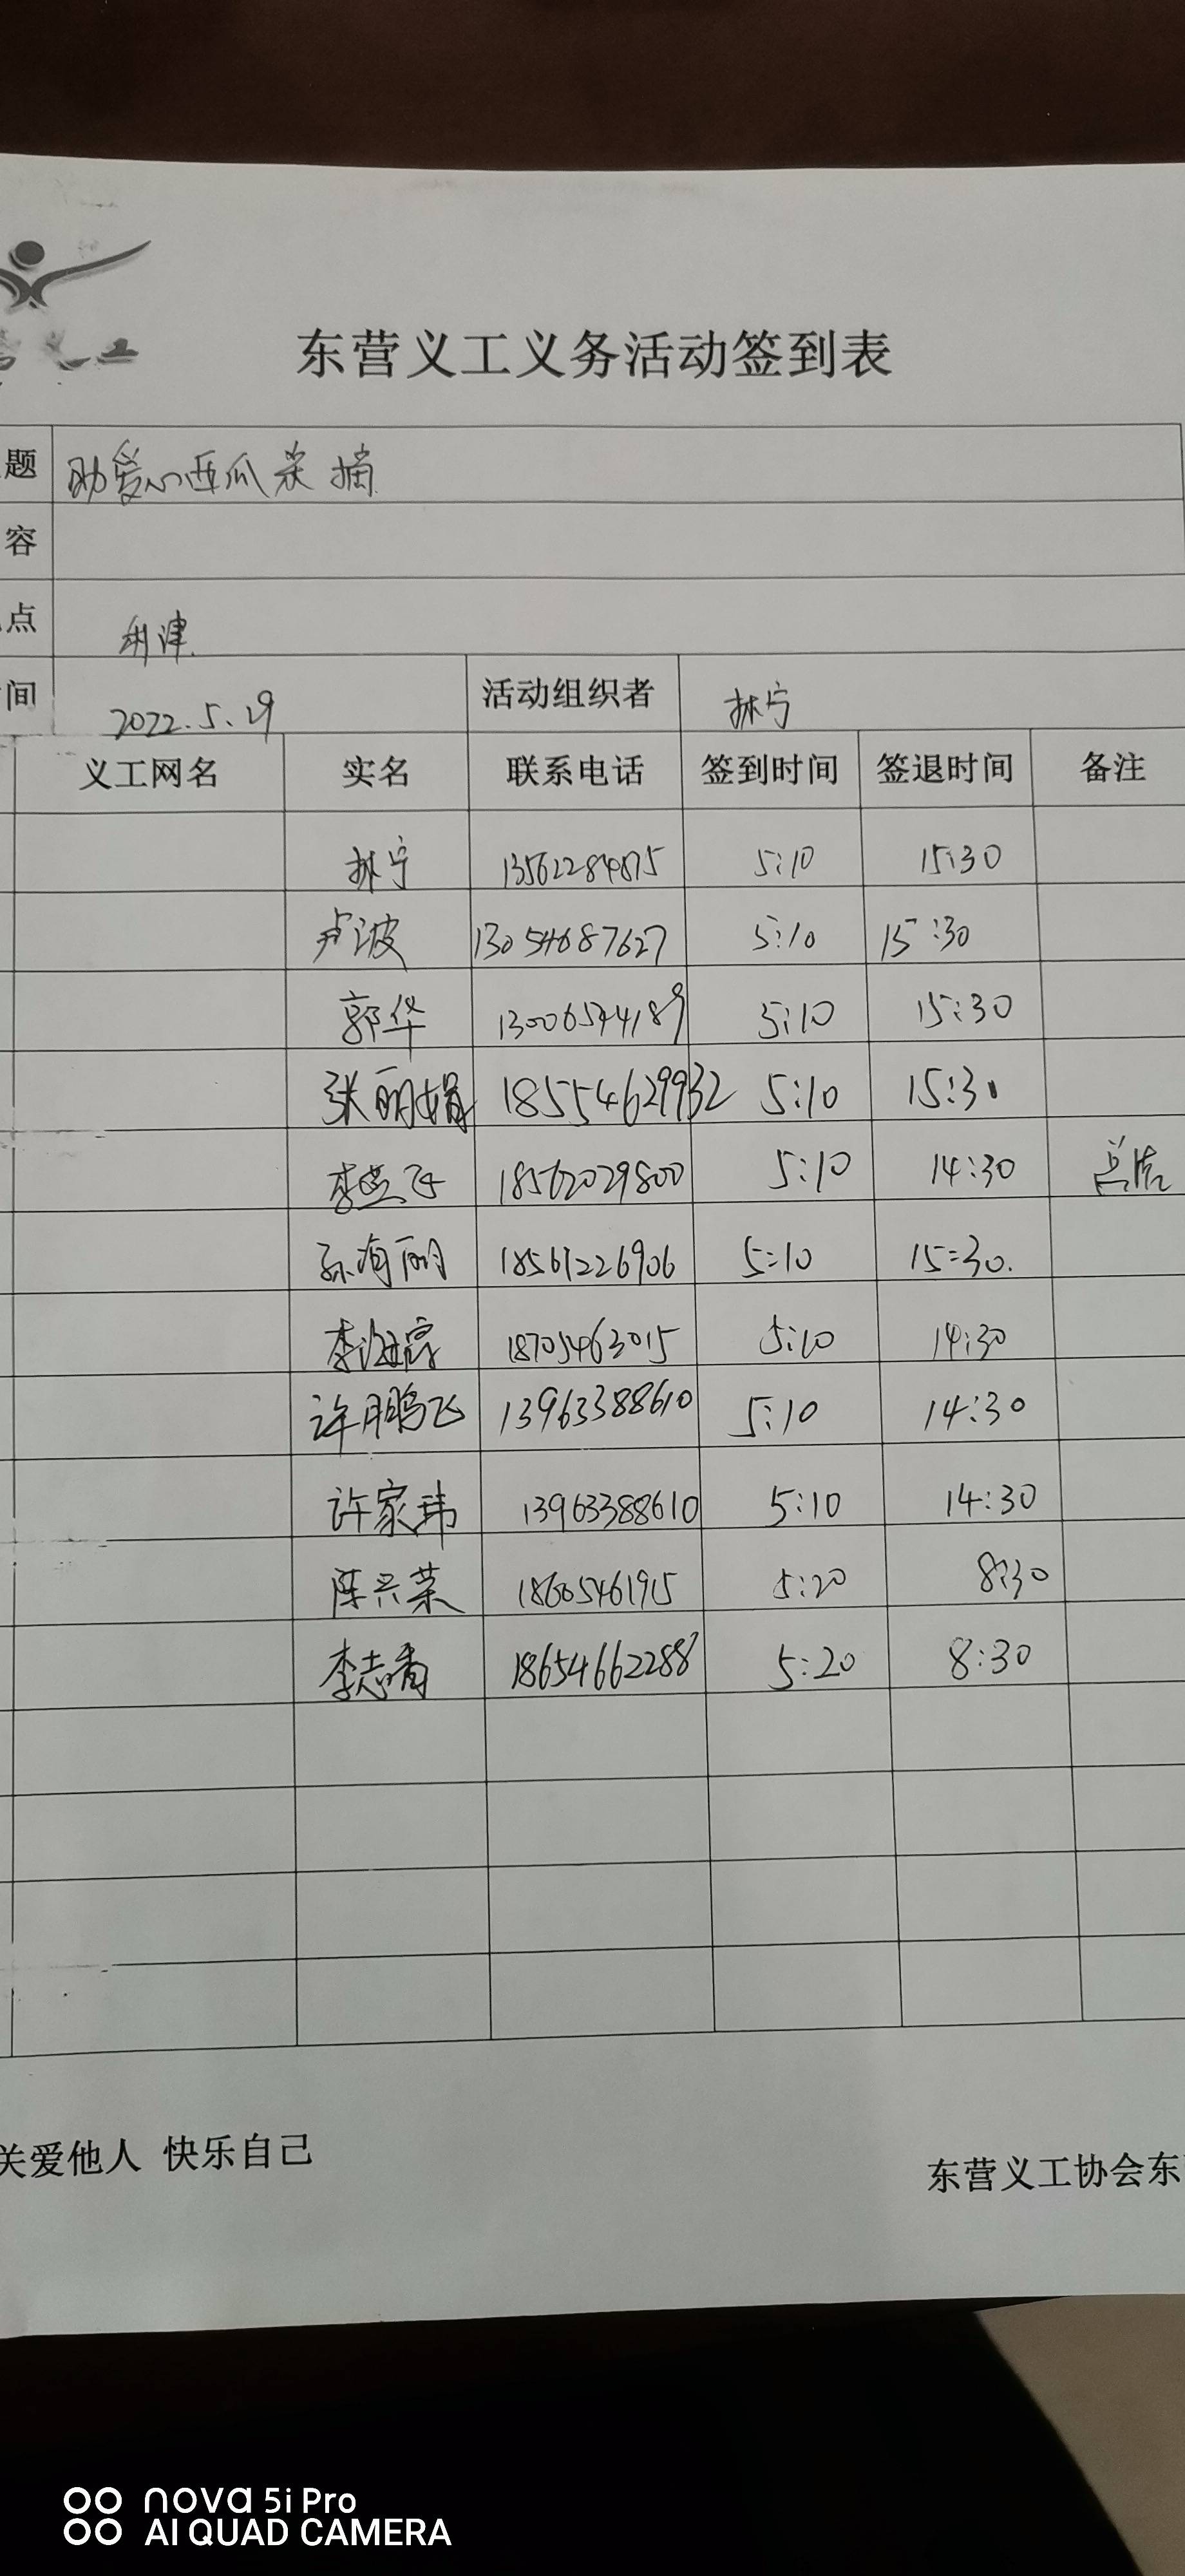 义工
东营义工义务活动签到表
题 助爱心西瓜采摘
容
点 利津
间 2022.5.29 活动组织者 林宁
义工网名 实名 联系电话 签到时间 签退时间 备注
林宁 13562284875 5:10 15:30
卢波 13054687627 5:10 15:30
郭华 13006544189 5:10 15:30
张丽娟 18554629932 5:10 15:30
李燕飞 18562029800 5:10 14:30
孙有丽 18561226906 5:10 15:30.
李海富 18705463015 5:10 14:30
许鹏飞 13963388610 5:10 14:30
许家玮 13963388610 5:10 14:30
陈兴荣 18605461915 5:20 8:30
李志香 18654662288 5:20 8:30
关爱他人 快乐自己
东营义工协会东
nova 5i Pro
AI QUAD CAMERA